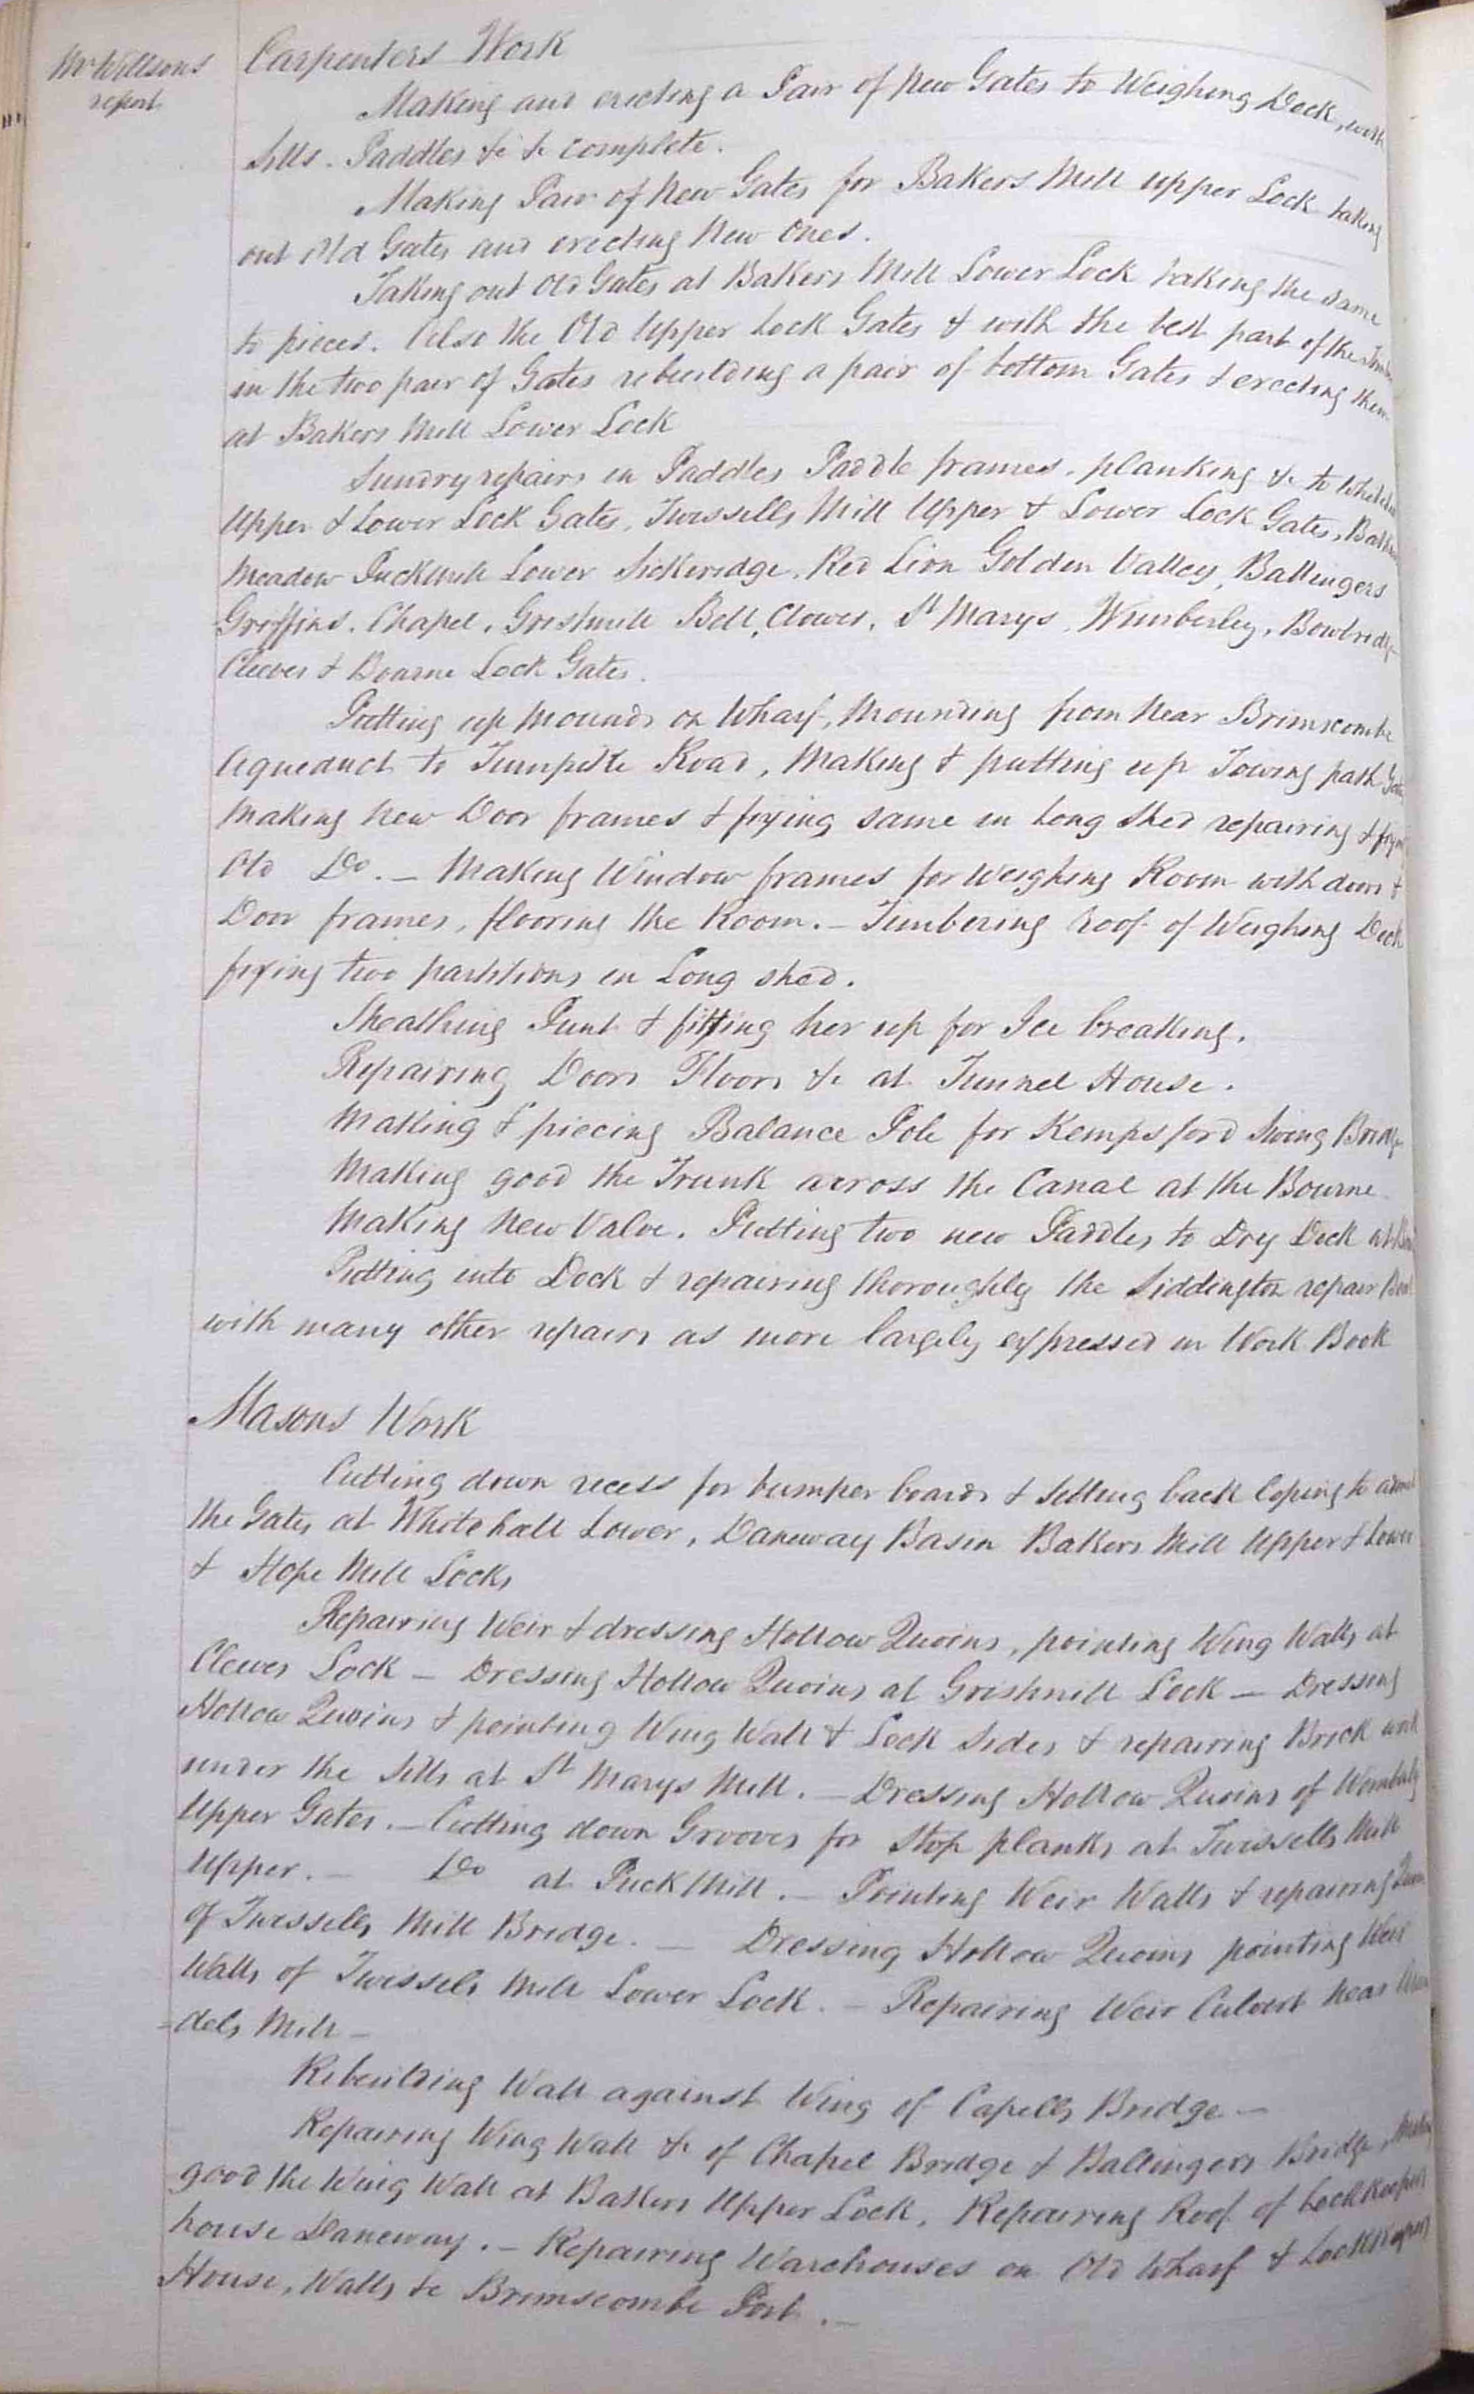 Mr Willsons
report
Carpenters Work
Making and erecting a Pair of New Gates to Weighing Dock, with
Sills. Paddles &c &c complete.
Making Pair of New Gates for Bakers Mill upper Lock taking
out Old Gates and erecting New Ones.
Taking out Old Gates at Bakers Mill Lower Lock taking the same
to pieces. Also the Old Upper Lock Gates & with the best part of the
in the two pair of Gates rebuilding a pair of bottom Gates & erecting them
at Bakers Mill Lower Lock
Sundry repairs in Paddles Paddle frames, planking &c to
Upper & Lower Lock Gates, Twissells Mill Upper & Lower Lock Gates,
Meadow Puckmill Lower Sickeridge, Red Lion Golden Valley, Ballingers
Griffins. Chapel, Gristmill Bell, Clowes, St Marys, Wimberley, Bowbridge
Cleeves & Bourne Lock Gates.
Putting up Mounds on Wharf, Mounding from Near Brimscombe
Aqueduct to Turnpike Road, Making & putting up Towing path
Making New Door frames & fixing same in Long Shed repairing & fixing
Old Do. – Making Window frames for Weighing Room with doors &
Door frames, flooring the Room. – Timbering roof of Weighing Dock
fixing two partitions in Long shed.
Sheathing Punt & fitting her up for Ice breaking.
Repairing Doors Floors &c at Tunnel House.
Making & piecing Balance Pole for Kempsford Swing Bridge
Making good the Trunk across the Canal at the Bourne
Making New Valve. Putting two new Paddles to Dry Dock at
Putting into Dock & repairing thoroughly the Siddington repair Boat
with many other repairs as more largely expressed in Work Book
Masons Work
Cutting down recess for bumper boards & setting back Coping to
the Gates at Whitehall Lower, Daneway Basin Bakers Mill Upper & Lower
& Hope Mill Locks
Repairing Weir & dressing Hollow Quoins, pointing Wing Walls at
Clewes Lock – Dressing Hollow Quoins at Gristmill Lock – Dressing
Hollow Quoins & pointing Wing Wall & Lock Sides & repairing Brick work
under the Sills at St Marys Mill. – Dressing Hollow Quoins of Wimberley
Upper Gates. – Cutting down Grooves for Stop planks at Twissells Mill
Upper. – Do at Puck Mill. – Pointing Weir Walls & repairing
of Twissells Mill Bridge. – Dressing Hollow Quoins pointing Weir
Walls of Twissels Mill Lower Lock. – Repairing Weir Culvert near Arun
-dels Mill –
Rebuilding Wall against Wing of Capells Bridge –
Repairing Wing Wall &c of Chapel Bridge & Ballingers Bridge, Making
good the Wing Wall at Bakers Upper Lock, Repairing Roof of Lockkeepers
house Daneway. – Repairing Warehouses on Old Wharf & Lockkeepers
House, Walls &c Brimscombe Port. –